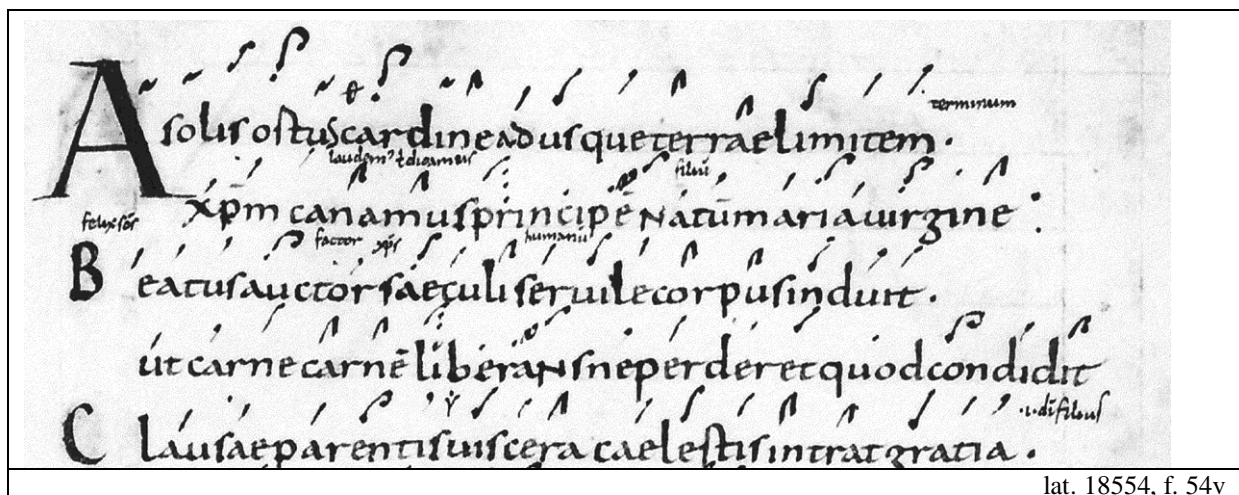 terminum
A solis ortus cardine ad usque terrae limitem ·
dicamus filiū
xp̄m canamus principē natū maria uirgine :
factor xp̄s humanū
Beatus auctor saeculi seruile corpus induit ·
ut carne carnē liberans ne perderet quod condidit
·i· dī filius
Clausae parentis uiscera caelestis intrat gratia ·
lat. 18554, f. 54v